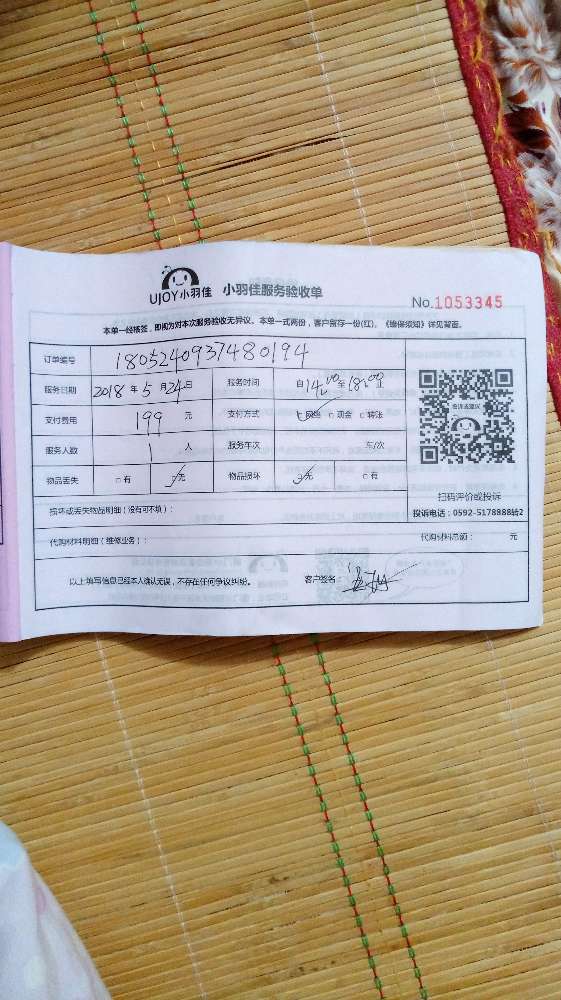 UJOY小羽佳 小羽佳服务验收单
No.1053345
本单一经核签，即视为对本次服务验收无异议。本单一式两份，客户留存一份(红)。《维保须知》详见背面。
订单编号 1805240937480194
服务日期 2018年5月24日 服务时间 自14:00至18:00止
支付费用 199元 支付方式 网络 □现金 □转账
服务人数 1人 服务车次 车/次
物品丢失 □有 无 物品损坏 无 □有
投诉或建议
扫码评价或投诉
投诉电话：0592-5178888转2
损坏或丢失物品明细（没有可不填）：
代购材料明细（维修业务）： 代购材料总额： 元
以上填写信息已经本人确认无误，不存在任何争议纠纷。 客户签名：